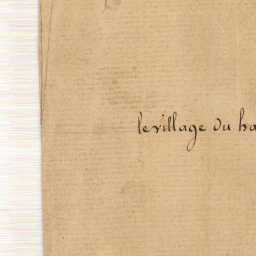 le village du ha